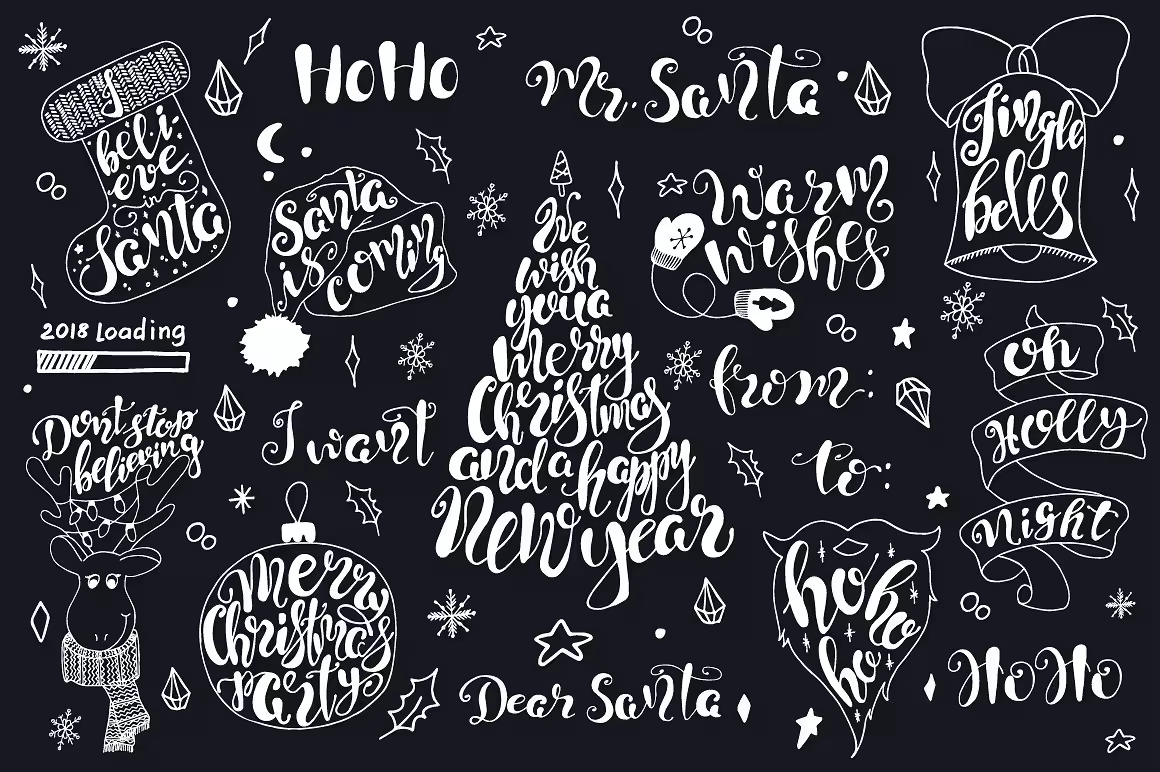 I
beli-
eve
in
Santa
HoHo
Mr. Santa
Jingle
bells
Santa
is coming
We
wish
you a
Merry
Christmas
and a happy
New year
Warm
wishes
2018 Loading
Dont stop
believing
I want
from:
to:
oh
Holly
Night
Merry
Christmas
party
Dear Santa
ho
ho
ho
HoHo